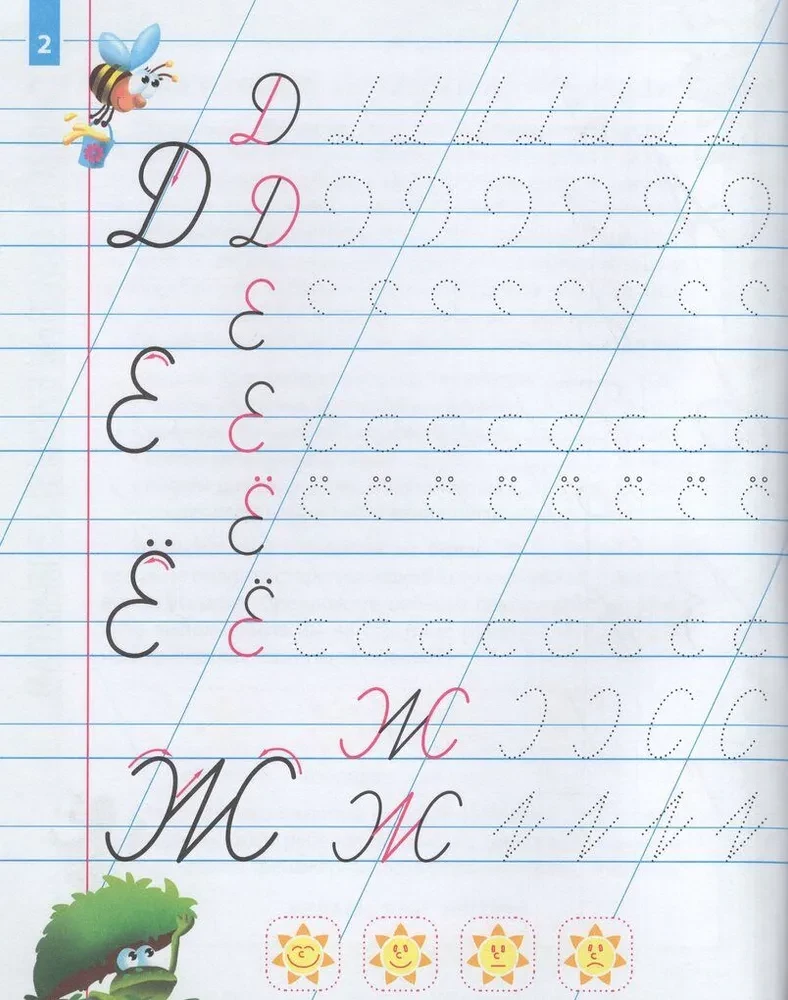 2
Д
Д Д
Е
Е Е
Ё
Ё Ё
Ж
Ж Ж